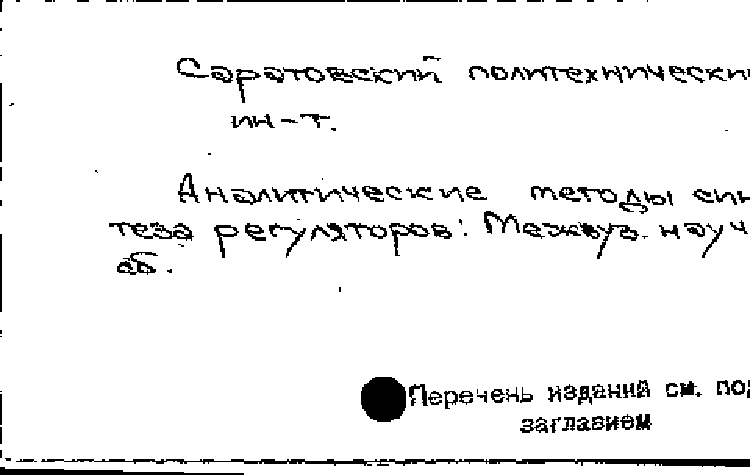 Саратовский политехнически
ин-т.
Аналитические методы син
теза регуляторов: Межвуз. науч
сб.
Перечень изданий см. под
заглавием